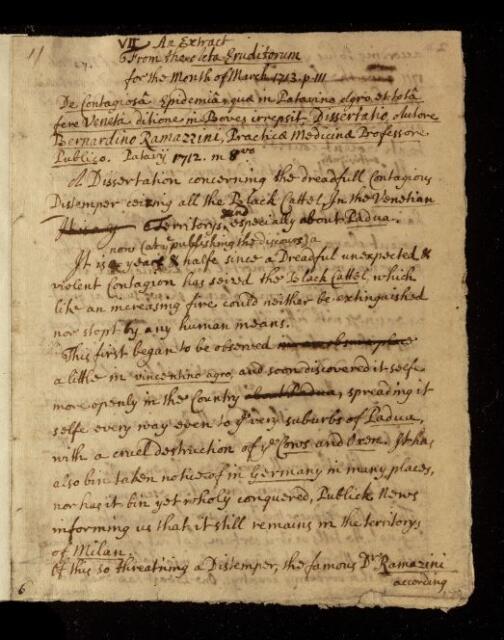 11
VII An Extract
From the Acta Eruditorum
for the Month of March 1713. p 111
De Contagiosâ Epidemiâ, quæ in Patavino Agro, et totâ
fere Venetâ ditione in Boves irrepsit. Dissertatio, Autore
Bernardino Ramazzini, Practicæ Medicinæ Professore
Publico. Patavij 1712. in 8vo
A Dissertation concerning the dreadfull Contagious
Distemper ceizing all the Black Cattel, In the Venetian
Territorys, and especially about Padua.
now (at publishing the discours) a
It is a year & halfe since a Dreadful unexpected &
violent Contagion has seized the Black Cattel, which
like an increasing fire could neither be extinguished
nor stopt by any human means.
This first began to be observed
a little in vincentino agro, and soon discovered it selfe
more openly in the Country about Padua, spreading it
selfe every way even to ye very suburbs of Padua,
with a cruel Destruction of ye Cows and Oxen. It has
also bin taken notice of in Germany in many places,
nor has it bin yet wholy conquered, Publick News
informing us that it still remains in the territorys
of Milan.
Of this so threatning a Distemper, the famous Dr Ramazini
according
6